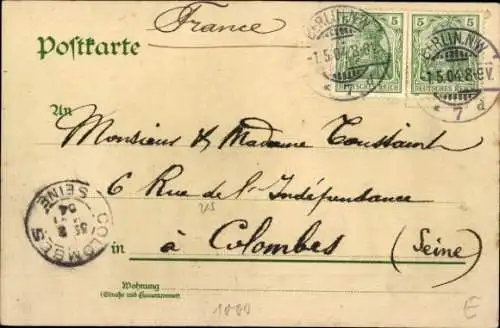 France
Postkarte
5 5
BERLIN.NW. BERLIN.NW.
-1.5.04.8-9V. -1.5.04.8-9V.
* 7 d * 7 d
DEUTSCHES REICH DEUTSCHES REICH
An
Monsieur & Madame Toustaint
6 Rue de l'Indépendance
COLOMBES
SEINE
04
in à Colombes (Seine)
Wohnung
(Straße und Hausnummer)
1000
E